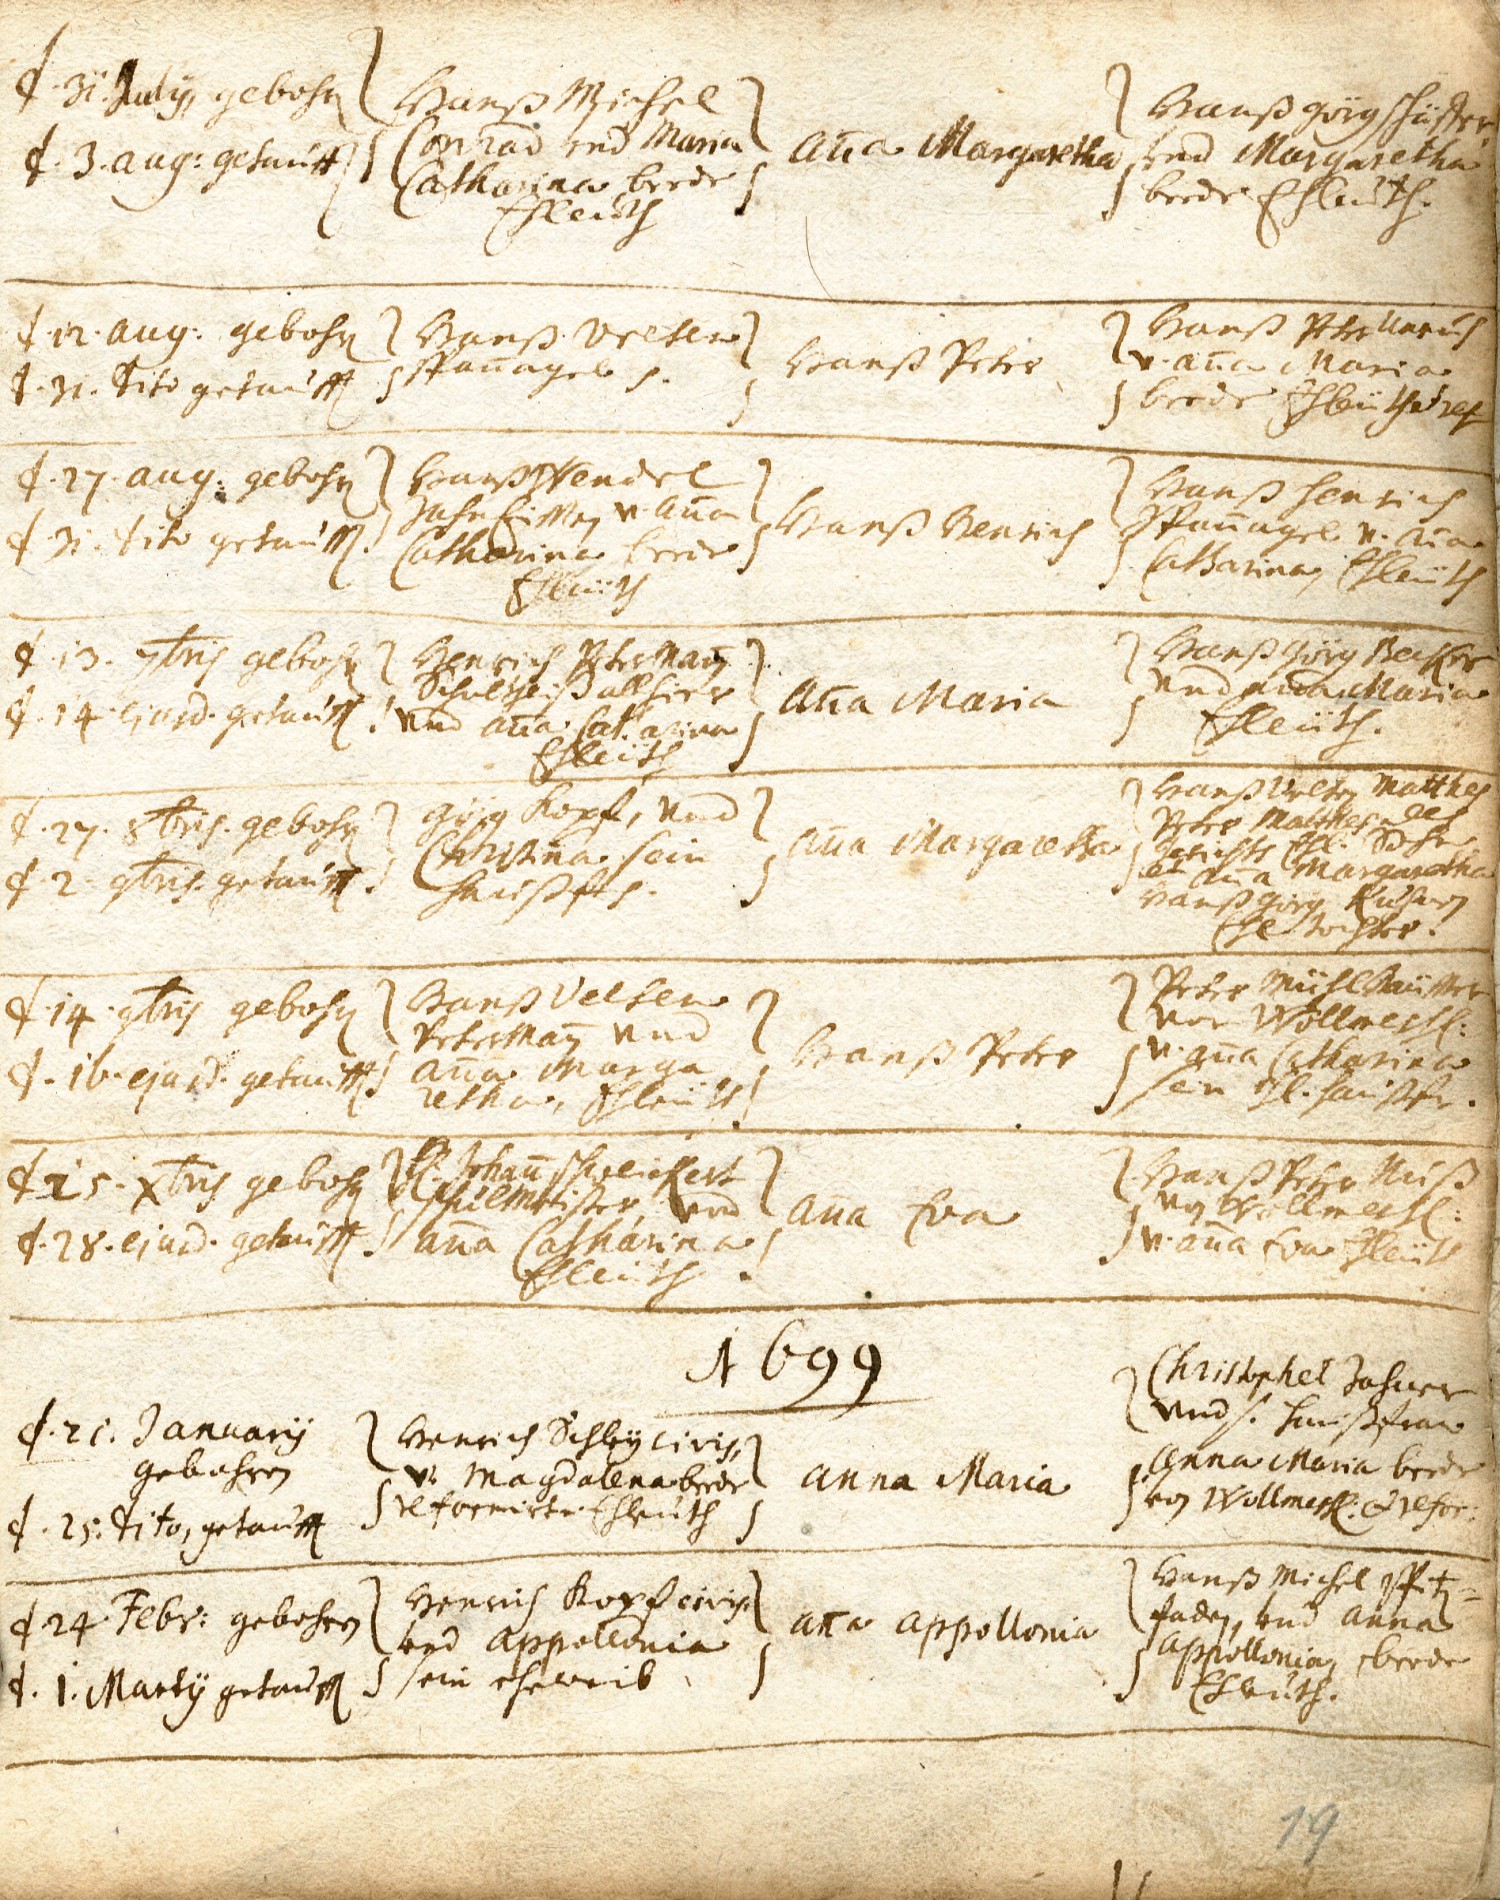 d. 31. July, gebohrn
d. 3. aug: getaufft
Hanß Michel
Conrad und Maria
Catharina beede
Ehleuth
Aña Margaretha
Hanß Görg Schüster
und Margaretha
beede Ehleuth.
d. 12. aug: gebohrn
d. 31. dito getaufft
Hanß Velten
Spañagel s.
Hanß Peter
Hanß Peter
v. aña Maria
beede Ehleüth ref
d. 27. aug: gebohrn
d. 31. dito getaufft.
Hanß Wendel
v. aña
Catharina beede
Ehleüth
Hanß Henrich
Hanß Henrich
Spañagel v. aña
Catharina, Ehleüth
d. 13. 7bris gebohrn
d. 14. ejusd. getaufft.
Henrich Petermañ
Schultheiß allhier
und aña Catarina
Ehleüth
Aña Maria
Hanß Görg Becker
und aña Maria
Ehleüth.
d. 27. 8bris. gebohrn
d. 2. 9bris. getaufft.
Görg Kopf, und
Christina sein
haußfr.
aña Margaretha
Hanß Velten Matthes
Peter Matthes des
gerichts Ehl. Sohn
et Aña Margaretha
Hanß Görg
Ehl. tochter.
d. 14. 9bris gebohrn
d. 16. ejusd. getaufft
Hanß Velten
Petermañ und
aña Marga
retha, Ehleüth
Hanß Peter
Peter Mühlhäußer
von Wollmeßh:
v. aña Catharina
sein Ehl. haußfr.
d. 25. Xbris gebohrn
d. 28. ejusd. getaufft
H. Johañ Schweickert
Schulmeister und
aña Catharina
Ehleüth
aña Eva
Hanß Peter Nuß
von Wollmeßh:
v. aña Eva Ehleüth
1699
d. 21. Januarij
gebohren
d. 25. dito, getaufft
Henrich Schley civis,
v. Magdalena beede
reformirte Ehleuth
anna Maria
Christophel
und s. haußfrau
Anna Maria beede
von Wollmeßh. & refor:
d. 24. Febr: gebohren
d. 1. Martij getaufft
Henrich Kopf civis
und Appollonia
sein eheweib
aña Appollonia
Hanß Michel Spitz-
faden, und Anna
Appollonia, beede
Ehleuth.
19